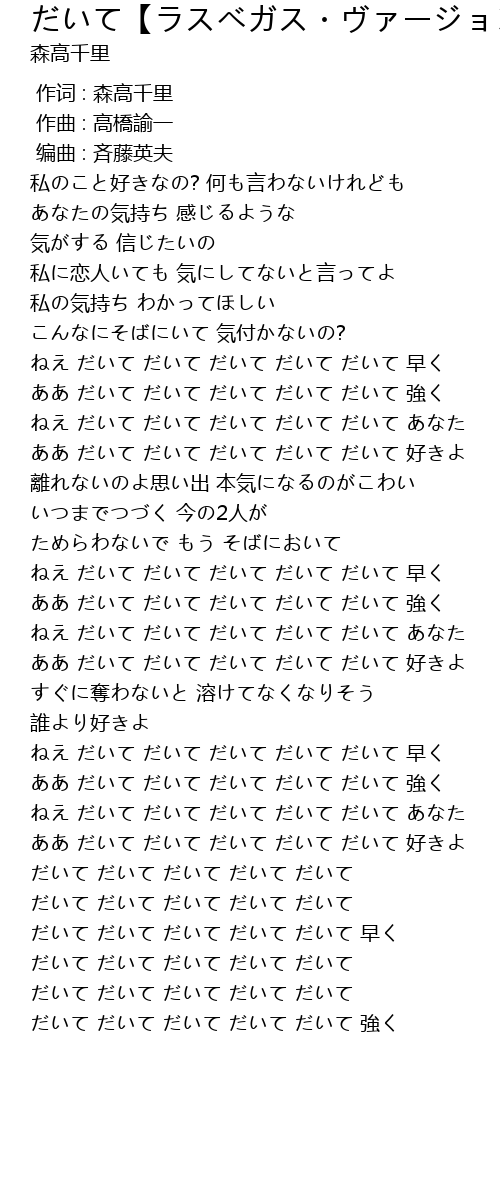 だいて【ラスベガス・ヴァージョ
森高千里
作词 : 森高千里
作曲 : 高橋諭一
编曲 : 斉藤英夫
私のこと好きなの? 何も言わないけれども
あなたの気持ち 感じるような
気がする 信じたいの
私に恋人いても 気にしてないと言ってよ
私の気持ち わかってほしい
こんなにそばにいて 気付かないの?
ねえ だいて だいて だいて だいて だいて 早く
ああ だいて だいて だいて だいて だいて 強く
ねえ だいて だいて だいて だいて だいて あなた
ああ だいて だいて だいて だいて だいて 好きよ
離れないのよ思い出 本気になるのがこわい
いつまでつづく 今の2人が
ためらわないで もう そばにおいて
ねえ だいて だいて だいて だいて だいて 早く
ああ だいて だいて だいて だいて だいて 強く
ねえ だいて だいて だいて だいて だいて あなた
ああ だいて だいて だいて だいて だいて 好きよ
すぐに奪わないと 溶けてなくなりそう
誰より好きよ
ねえ だいて だいて だいて だいて だいて 早く
ああ だいて だいて だいて だいて だいて 強く
ねえ だいて だいて だいて だいて だいて あなた
ああ だいて だいて だいて だいて だいて 好きよ
だいて だいて だいて だいて だいて
だいて だいて だいて だいて だいて
だいて だいて だいて だいて だいて 早く
だいて だいて だいて だいて だいて
だいて だいて だいて だいて だいて
だいて だいて だいて だいて だいて 強く